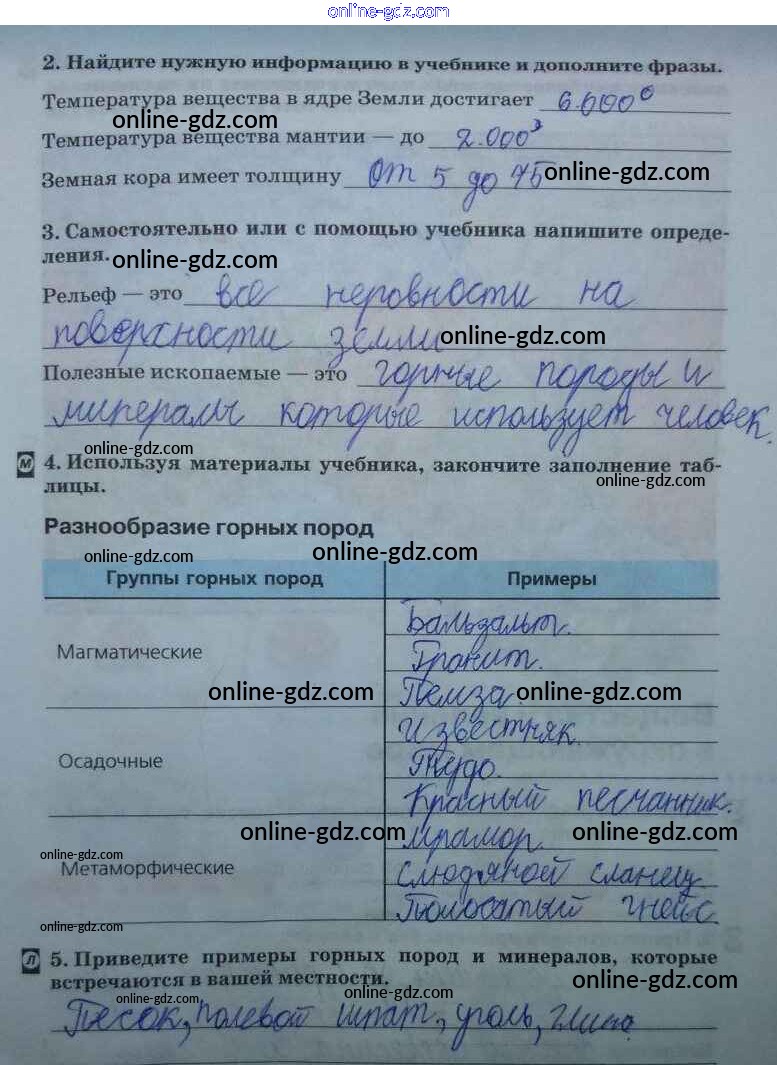 online-gdz.com
2. Найдите нужную информацию в учебнике и дополните фразы.
Температура вещества в ядре Земли достигает 6.000⁰
online-gdz.com
Температура вещества мантии — до 2.000³
online-gdz.com
Земная кора имеет толщину от 5 до 75
3. Самостоятельно или с помощью учебника напишите опреде-
ления. online-gdz.com
Рельеф — это все неровности на
поверхности земли online-gdz.com
Полезные ископаемые — это горные породы и
минералы которые использует человек.
online-gdz.com
М 4. Используя материалы учебника, закончите заполнение таб-
лицы. online-gdz.com
Разнообразие горных пород
online-gdz.com online-gdz.com
Группы горных пород Примеры
Бальзальт.
Магматические
Гранит.
online-gdz.com Пемза. online-gdz.com
Известняк.
Осадочные
Красный песчанник.
online-gdz.com Мрамор. online-gdz.com
online-gdz.com
Метаморфические слюдяной сланец
Полосатый гнейс
online-gdz.com
Л 5. Приведите примеры горных пород и минералов, которые
встречаются в вашей местности. online-gdz.com
online-gdz.com online-gdz.com
Песок, полевой шпат, уголь, глина